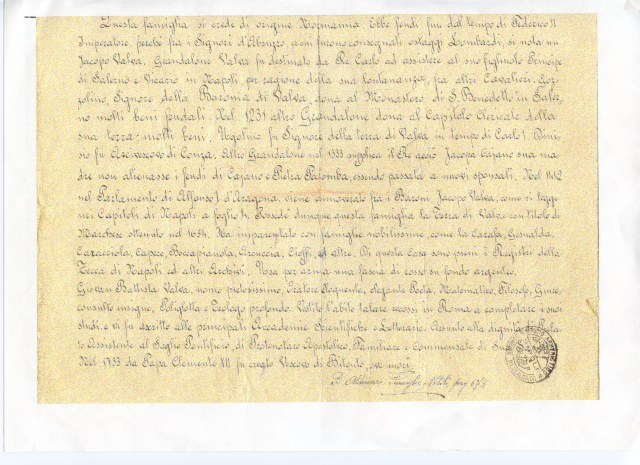 Questa famiglia si crede di origine Normanna. Ebbe feudi fin dal tempo di Federico II
Imperatore, perchè fra i Signori d'Abruzzo, a cui furono consegnati ostaggi Lombardi, si nota un
Jacopo Valva. Grandalone Valva fu destinato da Re Carlo ad assistere al suo figliuolo Principe
di Salerno e Vicario in Napoli, per ragione della sua lontananza, fra altri Cavalieri. Goz-
zolino, Signore della Baronia di Valva, dona al Monastero di S. Benedetto in Saler-
no molti beni feudali. Nel 1231 altro Grandalone dona al Capitolo Clericale della
sua terra, molti beni. Ugolino fu Signore della terra di Valva in tempo di Carlo I.
so fu Arcivescovo di Conza. Altro Grandalone nel 1333 supplica il Re acciò Jacopa Cajano sua ma-
dre non alienasse i feudi di Cajano e Pietra Palomba, essendo passata a nuovi sponsali. Nel 1442
nel Parlamento di Alfonso I d'Aragona, viene annoverato fra i Baroni, Jacopo Valva, come si legge
nei Capitoli di Napoli a foglio 4. Possedè dunque questa famiglia la Terra di Valva con titolo di
Marchese ottenuto nel 1634. Ha imparentato con famiglie nobilissime, come la Carafa, Gesualda,
Caracciola, Capece, Boccapianola, ed altre. Di questa Casa sono pieni i Registri della
Zecca di Napoli ed altri Archivi. Usa per arma una fascia di rosso su fondo argenteo.
Giovan Battista Valva, uomo pietosissimo, Oratore eloquente, elegante Poeta, Matematico, Filosofo, Giure-
consulto insigne, Poliglotta e Teologo profondo. Vestito l'abito talare recossi in Roma a completare i suoi
studi, e vi fu ascritto alle principali Accademie Scientifiche e Letterarie. Assunto alla dignità di Prela-
to Assistente al Soglio Pontificio, di Protonotaro Apostolico, Familiare e Commensale di Sua
Nel 1733 da Papa Clemente XII fu creato Vescovo di Bitonto, ove morì.
Famiglie Nobili pag 678